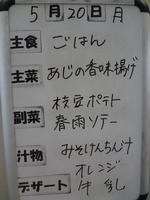 5月20日 月
主食 ごはん
主菜 あじの香味揚げ
副菜 枝豆ポテト
春雨ソテー
汁物 みそけんちん汁
オレンジ
デザート 牛乳